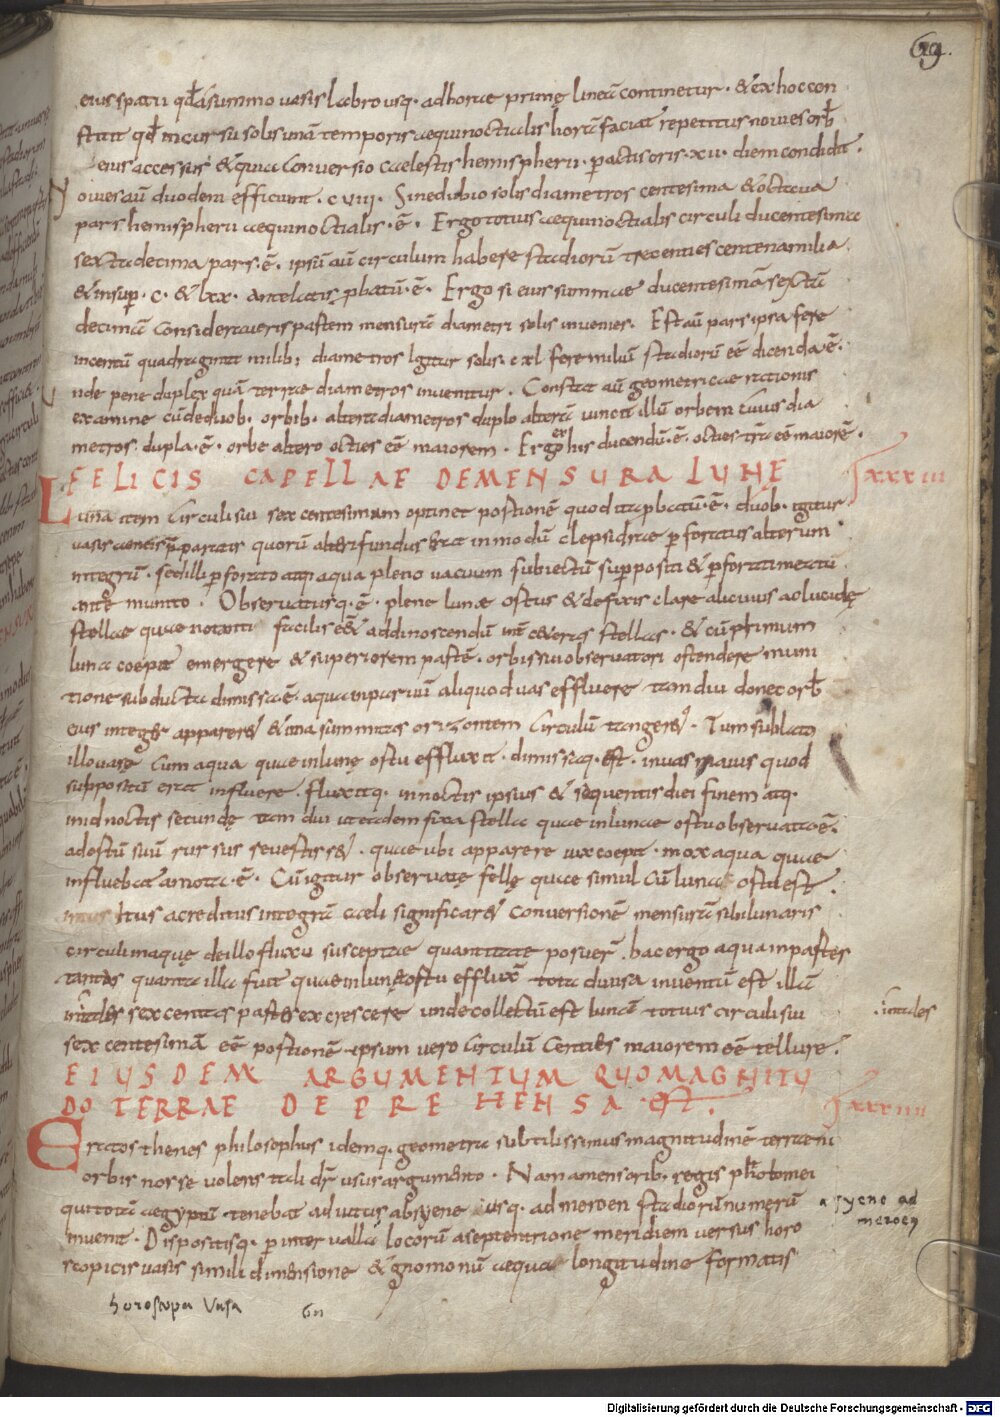 69.
eius spatii qđ a summo uasis labro usq. ad horae primę lineā continetur. & ex hoc con
stitit qđ in cursu solis unā temporis aequinoctialis horā faciat repetitus nouies orb
eius accessus & quia conuersio caelestis hemispherii. pactis oris. xii. diem condidit.
ouies aū duodeni efficiunt. cviii. Sine dubio solis diametros centesima & octaua
pars hemispherii aequinoctialis. ē. Ergo totius aequinoctialis circuli ducentesima
sexta decima pars. ē. ipsū aū circulum habere stadiorū trecenties centena milia
& insup. c. & lxx. antelatis phatū. ē. Ergo si eius summae ducentesimā sextā
decimā consideraueris partem mensurā diametri solis inuenies. Est aū pars ipsa fere
in centū quadraginta milib; diametros igitur solis. cxl fere miliū stadiorū eē dicenda ē.
nde pene duplex quā terrae diametros inuenitur. Constat aū geometricae rationis
examine cū de duob. orbib. altera diametros duplo alterā uincit illū orbem cuius dia
metros. dupla. ē. orbe altero octies eē maiorem. Ergo ex his dicendū. ē. octies trā eē maiorē.
FELICIS CAPELLAE DE MENSURA LUNĘ
lxxxiii
Luna item circuli sui sexcentesimam optinet portionē quod ita pbatū. ē. duob. igitur
uasis aeneis pparatis quorū alteri fundus erat in modū clepsidrae pforatus alterum
integrū. sed illi pforato atq; aqua pleno uacuum subiectū supposit & pforati meatū
ante munito. Obseruatusq. ē. plene lunae ortus & defixis clare alicuius ac lucidę
stellae quae notanti facilis eēt ad dinoscendū int ceteras stellas. & cū primum
luna coepit emergere & superiorem partē. orbis sui obseruatori ostendere muni
tione subducta dimissa ē. aqua inparuū aliquod uas effluere tam diu donec orb
eius integer appareret & ima summitas orizontem circulū tangeret. Tum sublato
illo uase cum aqua quae in lunę ortu effluxit. dimissaq. est. in uas maius quod
suppositū erat influere. fluxitq. in noctis ipsius & sequentis diei finem atq.
in id noctis secundę tam diu ut eadem fixa stella quae in lunae ortu obseruata ē.
ad ortū suū rursus reuerteret. quae ubi apparere uix coepit. mox aqua quae
influebat amota. ē. Cū igitur obseruatę stellę quae simul cū luna orta est.
circulū aquę de illo fluxu susceptae quantitate posuer. hac ergo aqua in partes
tantas quanta illa fuit quae in lunę ortu effluxit tota diuisa inuentū est illā
sexcentas partes excrescere unde collectū est lunā totius circuli sui
intales
sexcentesimā eē portionē ipsum uero circulū centies maiorem eē tellure.
EIUSDEM ARGUMENTUM QUO MAGNITU
DO TERRAE DEPREHENSA EST.
lxxxiiii
Eratosthenes philosophus idemq. geometra subtilissimus magnitudinē terreni
orbis nosse uolens tali dr usus argumento. Nam a mensorib. regis ptholomei
qui totā aegyptū tenebat adiutus absyene usq. ad meroen stadiorū numerū
a syene ad
meroen
inuenit. Dispositisq. p interualla locorū a septentrione meridiem uersus horo
scopicis uasis simili dimensione & gnomonū aequa longitudine formatis
horoscopa Vasa